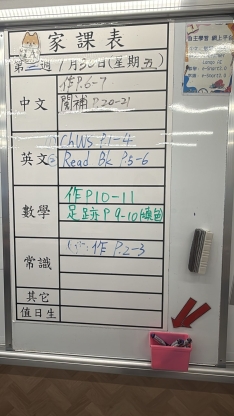 家課表
第三週 1月30日(星期五)
中文
作P.6-7
閱補 P.20-21
英文
Ch Ws P.1-4
Read Bk P.5-6
數學
作P10-11
足跡P 9-10
常識
作 P.2-3
其它
值日生
自主學習 網上平台